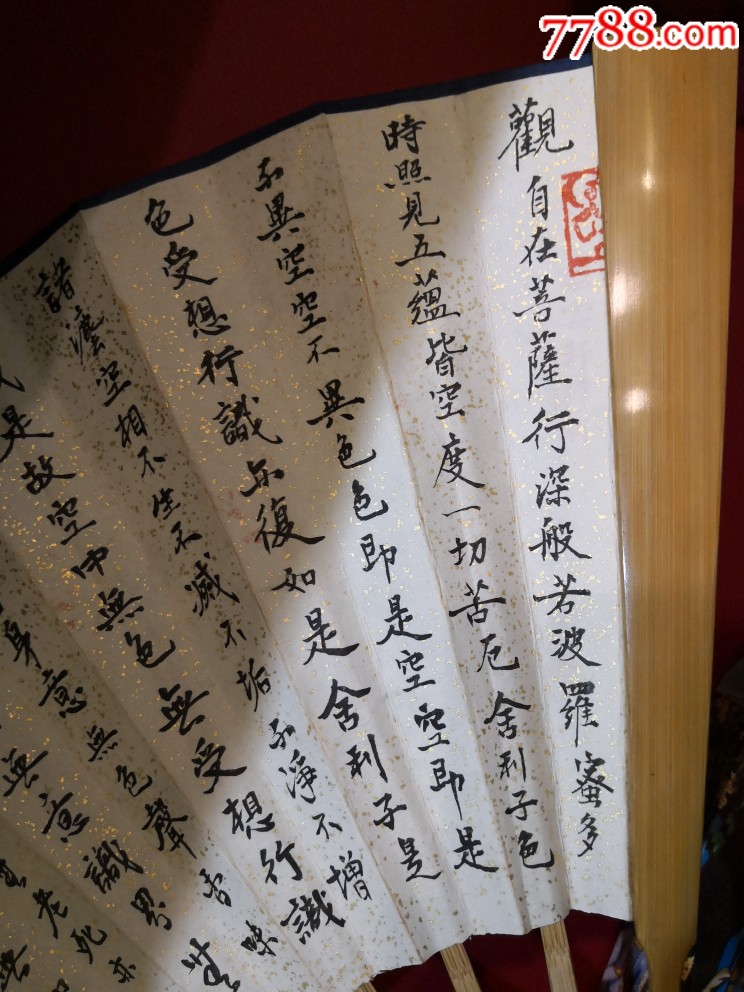 7788.com
觀自在菩薩行深般若波羅蜜多
時照見五蘊皆空度一切苦厄舍利子色
不異空空不異色色即是空空即是
色受想行識亦復如是舍利子是
諸灋空相不生不滅不垢不淨不增
是故空中無色無受想行識
身意無色聲香味
無意識界無
老死亦